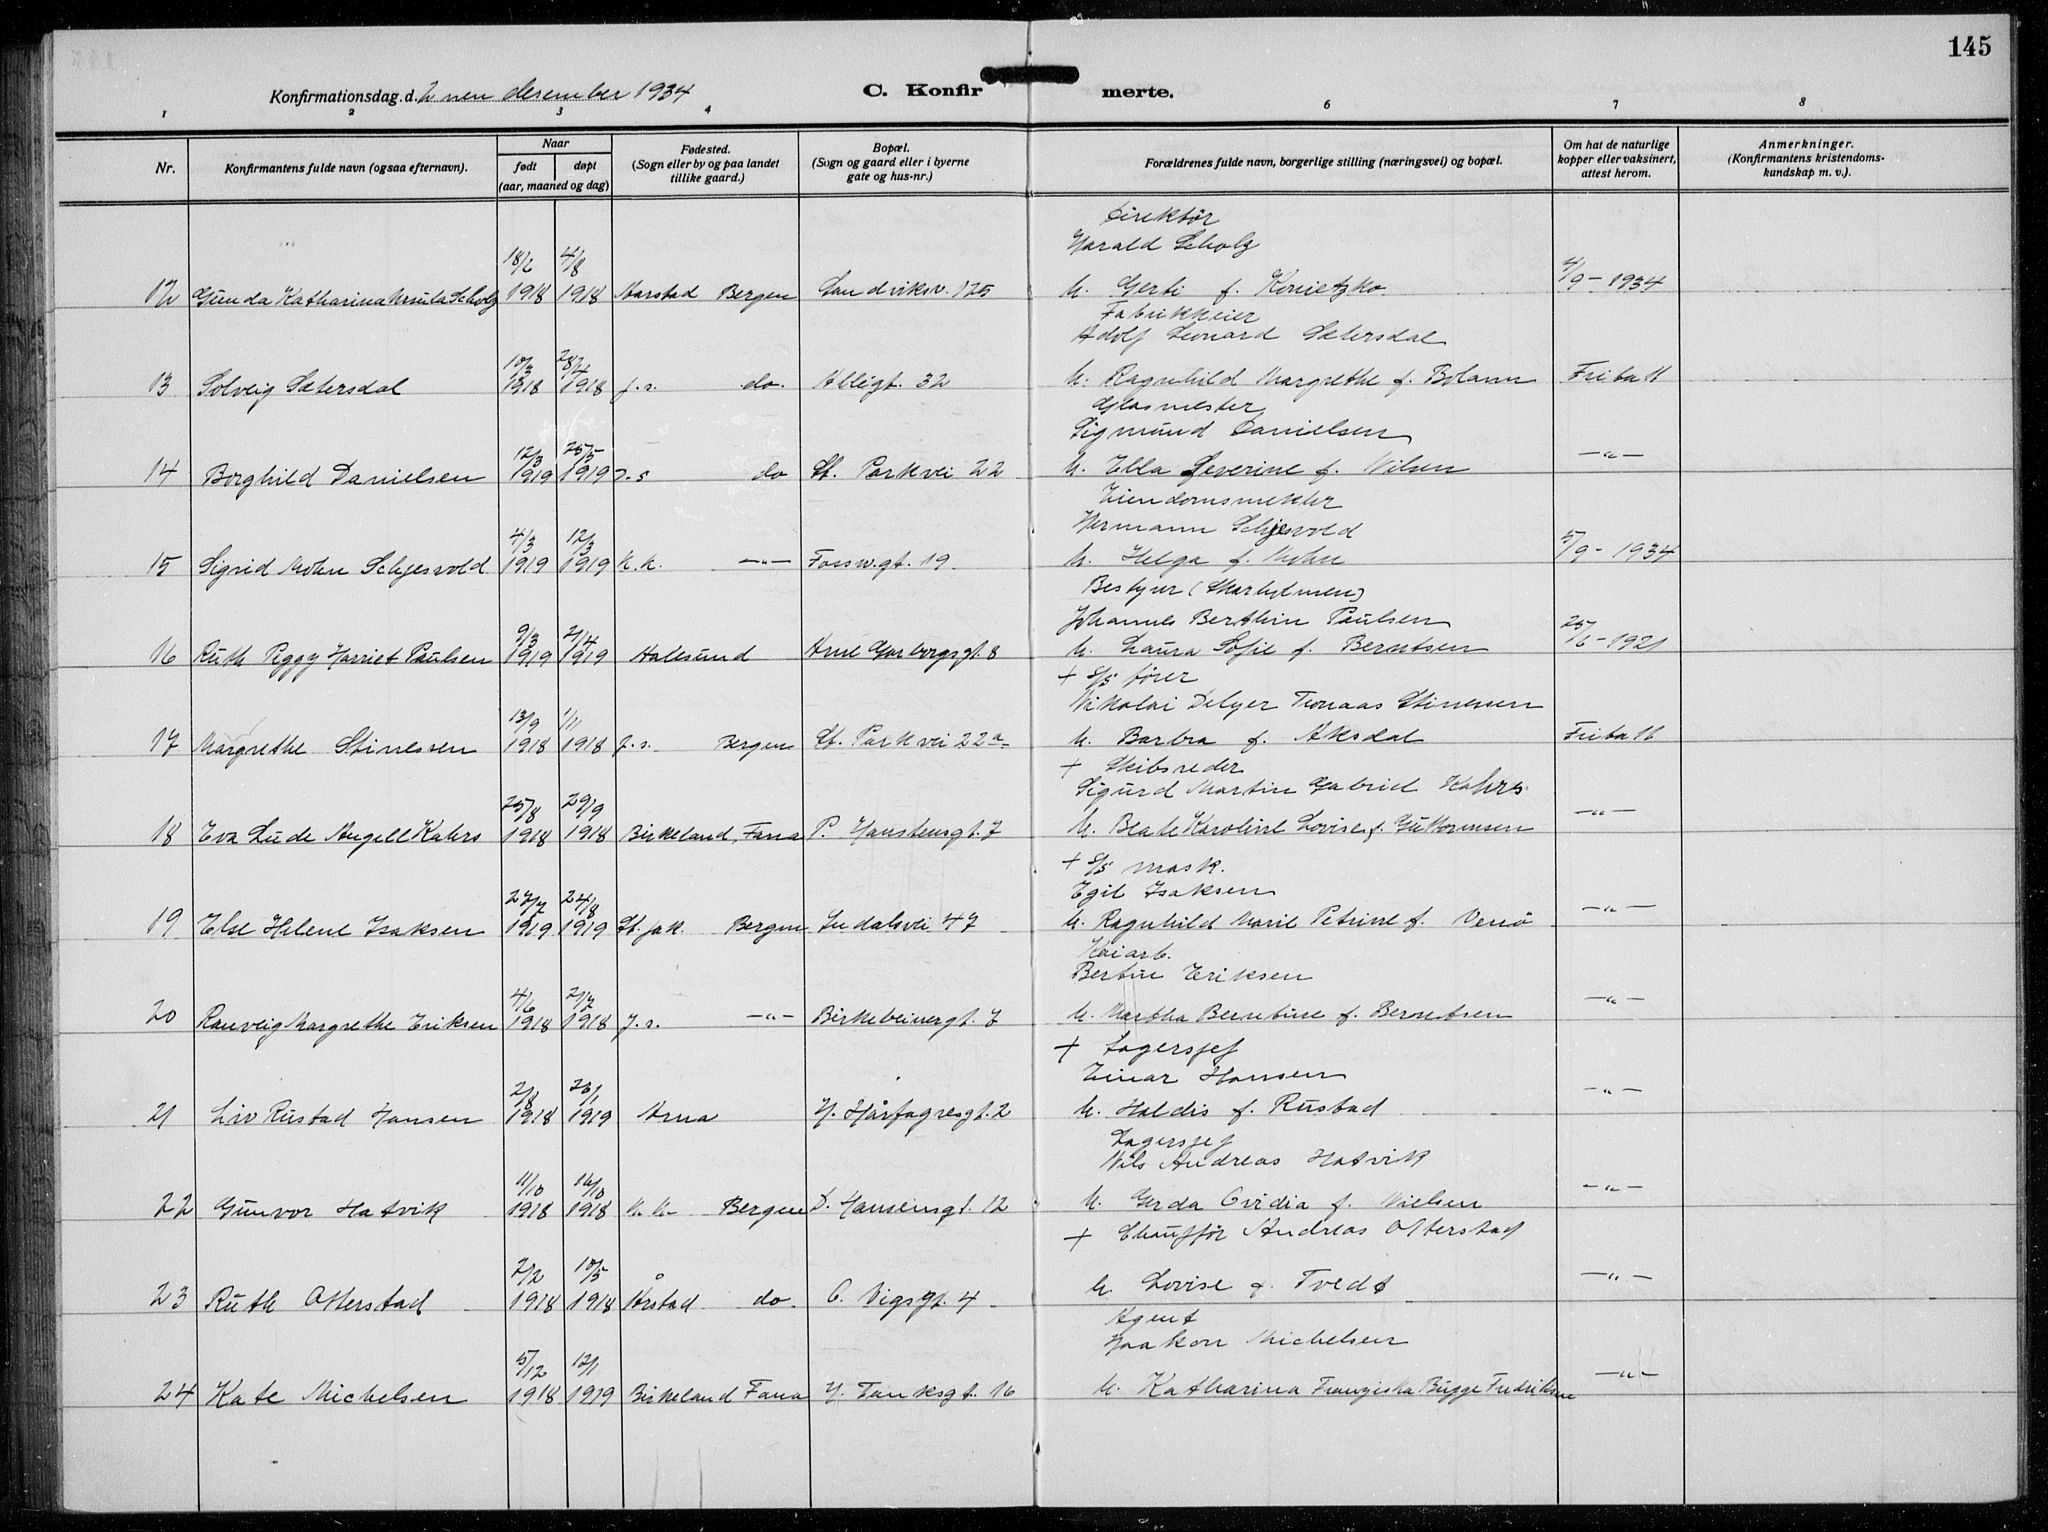 145
Konfirmationsdag. d. 2 nen desember 1934
C. Konfirmerte.
1 2 3 4 6 7 8
Nr.
Konfirmantens fulde navn (ogsaa efternavn).
Naar
født
døpt
(aar, maaned og dag)
Fødested.
(Sogn eller by og paa landet
tillike gaard.)
Bopæl.
(Sogn og gaard eller i byerne
gate og hus-nr.)
Forældrenes fulde navn, borgerlige stilling (næringsvei) og bopæl.
Om hat de naturlige
kopper eller vaksinert,
attest herom.
Anmerkninger.
(Konfirmantens kristendoms-
kundskap m. v.).
Direktør
Harald Scholz
12 Gunda Katharina Ursula Scholz 18/6 1918 4/8 1918 Aarstad Bergen Sandviksv. 125 h. Gerti f. Konietzko 4/9 - 1934
Fabrikkeier
Adolf Leonard Sætersdal
13 Solveig Sætersdal 10/3 1918 28/4 1918 J. s. do. Allégt. 32 h. Ragnhild Margrethe f. Bolann Fribatt
Glasmester
Sigmund Danielsen
14 Borghild Danielsen 12/3 1919 25/5 1919 J. s do St. Parkvei 22 h. Ella Severine f. Nilsen -"-
Eiendomsmekler
Hermann Schjesvold
15 Sigrid Mohn Schjesvold 4/3 1919 12/3 1919 K. k. -"- Fossw.gt. 19 h. Helga f. Mohn 5/9 - 1934
Bestyrer
Johannes Berthin Paulsen
16 Ruth Peggy Harriet Paulsen 9/3 1919 21/4 1919 Aalesund Arne Garborgsgt. 8 h. Laura Sofie f. Berntsen 25/6 - 1921
+ S/S fører
Nikolai Tomas Stinessen
17 Margrethe Stinessen 13/9 1918 1/11 1918 J. s. Bergen St. Parkvei 22 a h. Barbra f. Aksdal Fribatt
+ Skibsreder
Sigurd Martin Gabriel Kahrs
18 Eva Lude Angell Kahrs 25/8 1918 29/9 1918 Birkeland, Fana P. Hanstensgt. 7 h. Beate Karoline Lovise f. Guttormsen -"-
+ S/S mask.
Egil Isaksen
19 Else Helene Isaksen 27/7 1919 24/8 1919 St. Jak. Bergen Sudalsvei 47 h. Ragnhild Marie Petrine f. Versø -"-
Kaiarb.
Bertin Eriksen
20 Ranveig Margrethe Eriksen 4/6 1918 21/7 1918 J. s. -"- Birkebeinergt. 7 h. Martha Berntine f. Berntsen -"-
+ Lagersjef
Einar Hansen
21 Liv Rustad Hansen 2/8 1918 26/1 1919 Arna H. Hårfagresgt. 2 h. Haldis f. Rustad -"-
Lagersjef
Nils Andreas Hatvik
22 Gunvor Hatvik 11/10 1918 16/10 1918 K. k. Bergen D. Hansensgt. 12 h. Gerda Ovidia f. Nielsen -"-
+ Chauffør Andreas Otterstad
23 Ruth Otterstad 2/2 1918 10/5 1918 Årstad do. O. Vigsgt. 4 h. Lovise f. Tvedt -"-
Agent
Haakon Michelsen
24 Kate Michelsen 5/12 1918 12/1 1919 Birkeland Fana H. Tanksgt. 16 h. Katharina Franziska Bugge Fredriksen -"-